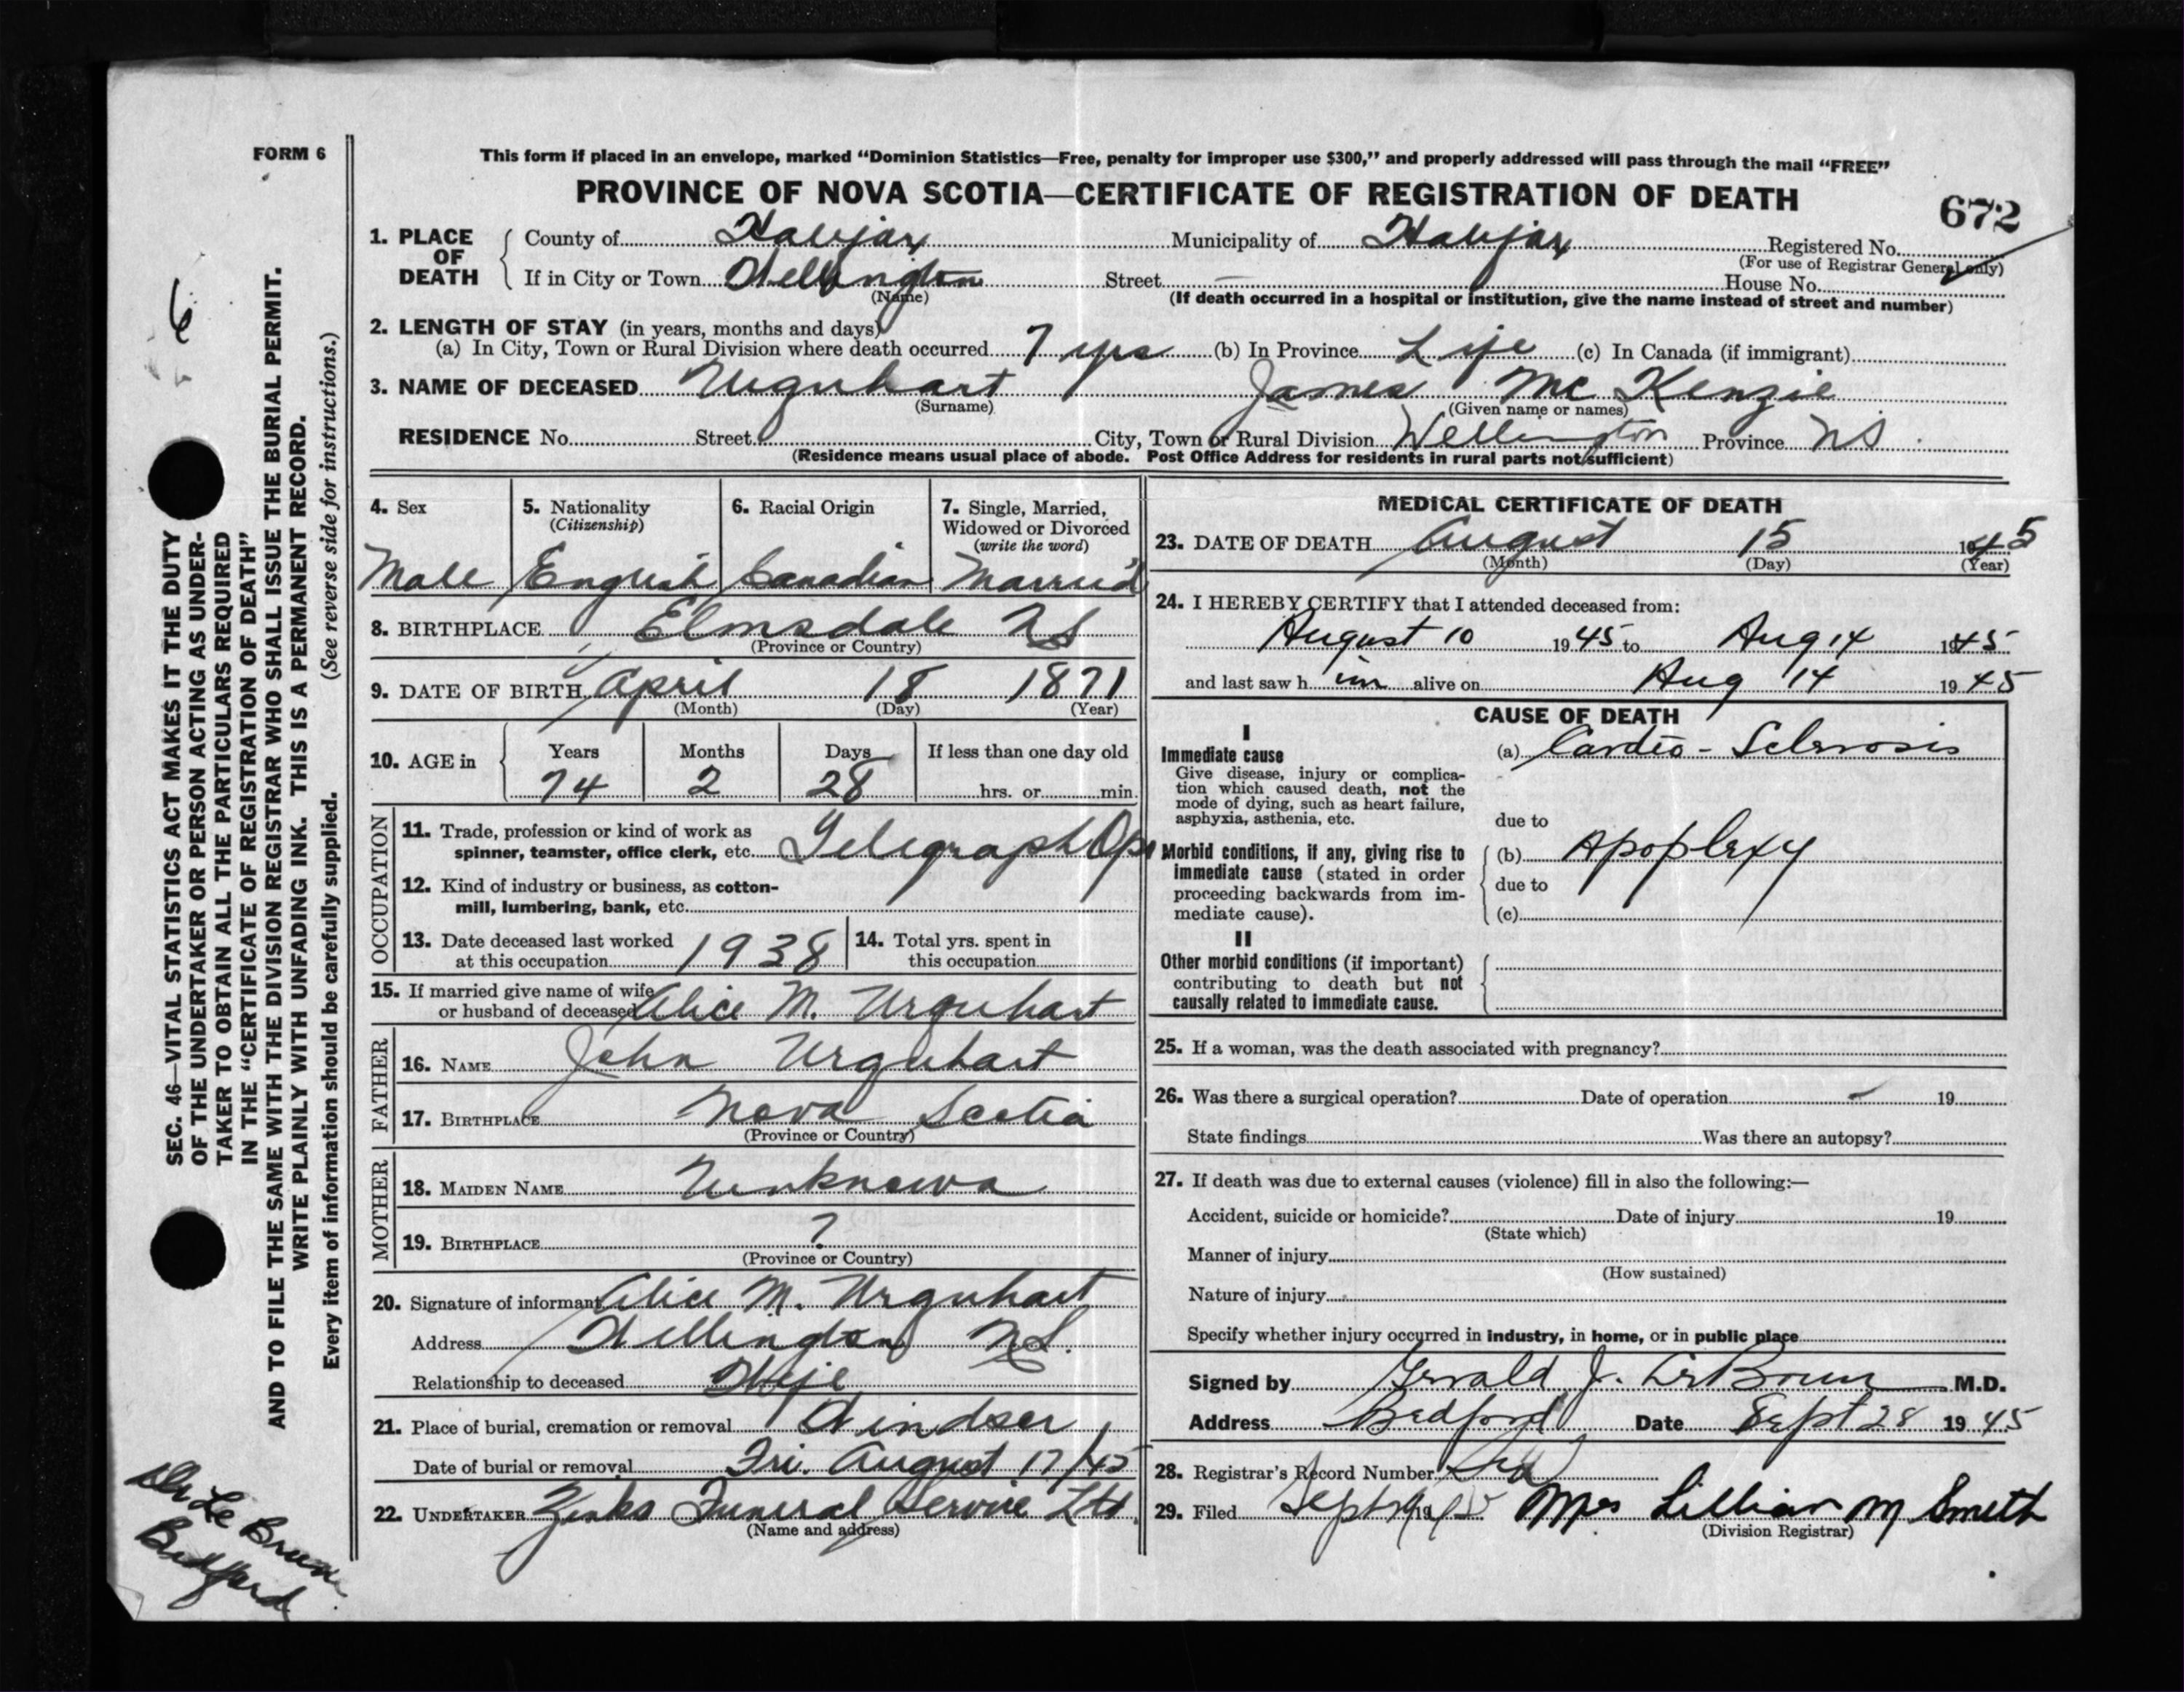 FORM 6
This form if placed in an envelope, marked “Dominion Statistics—Free, penalty for improper use $300,” and properly addressed will pass through the mail “FREE”
PROVINCE OF NOVA SCOTIA—CERTIFICATE OF REGISTRATION OF DEATH
672
1. PLACE OF DEATH
County of Halifax Municipality of Halifax Registered No.
(For use of Registrar General only)
If in City or Town Wellington Street — House No.
(Name) (If death occurred in a hospital or institution, give the name instead of street and number)
2. LENGTH OF STAY (in years, months and days)
(a) In City, Town or Rural Division where death occurred 7 yrs (b) In Province Life (c) In Canada (if immigrant)
3. NAME OF DECEASED Urquhart James McKenzie
(Surname) (Given name or names)
RESIDENCE No. Street City, Town or Rural Division Wellington Province NS.
(Residence means usual place of abode. Post Office Address for residents in rural parts not sufficient)
4. Sex
Male
5. Nationality
(Citizenship)
English
6. Racial Origin
Canadian
7. Single, Married,
Widowed or Divorced
(write the word)
Married
8. BIRTHPLACE Elmsdale NS
(Province or Country)
9. DATE OF BIRTH April 18 1871
(Month) (Day) (Year)
10. AGE in
Years Months Days If less than one day old
74 2 28 hrs. or min.
OCCUPATION
11. Trade, profession or kind of work as
spinner, teamster, office clerk, etc. Telegraph Opr
12. Kind of industry or business, as cotton-
mill, lumbering, bank, etc.
13. Date deceased last worked
at this occupation 1938
14. Total yrs. spent in
this occupation
15. If married give name of wife
or husband of deceased Alice M. Urquhart
FATHER
16. NAME John Urquhart
17. BIRTHPLACE Nova Scotia
(Province or Country)
MOTHER
18. MAIDEN NAME Unknown
19. BIRTHPLACE ?
(Province or Country)
20. Signature of informant Alice M. Urquhart
Address Wellington NS.
Relationship to deceased Wife
21. Place of burial, cremation or removal Windsor
Date of burial or removal Fri. August 17/45
22. UNDERTAKER Zinks Funeral Service Ltd.
(Name and address)
MEDICAL CERTIFICATE OF DEATH
23. DATE OF DEATH August 15 1945
(Month) (Day) (Year)
24. I HEREBY CERTIFY that I attended deceased from:
August 10 1945 to Aug 14 1945
and last saw him alive on Aug 14 1945
CAUSE OF DEATH
I
Immediate cause
Give disease, injury or complica-
tion which caused death, not the
mode of dying, such as heart failure,
asphyxia, asthenia, etc.
(a) Cardio-Sclerosis
due to
Morbid conditions, if any, giving rise to
immediate cause (stated in order
proceeding backwards from im-
mediate cause).
(b) Apoplexy
due to
(c)
II
Other morbid conditions (if important)
contributing to death but not
causally related to immediate cause.
25. If a woman, was the death associated with pregnancy?
26. Was there a surgical operation? Date of operation — 19
State findings Was there an autopsy?
27. If death was due to external causes (violence) fill in also the following:—
Accident, suicide or homicide? Date of injury 19
(State which)
Manner of injury
(How sustained)
Nature of injury
Specify whether injury occurred in industry, in home, or in public place
Signed by Gerald J. LeBrun M.D.
Address Bedford Date Sept 28 1945
28. Registrar's Record Number
29. Filed Sept 1945 Mrs Lillian M Smith
(Division Registrar)
SEC. 46—VITAL STATISTICS ACT MAKES IT THE DUTY
OF THE UNDERTAKER OR PERSON ACTING AS UNDER-
TAKER TO OBTAIN ALL THE PARTICULARS REQUIRED
IN THE “CERTIFICATE OF REGISTRATION OF DEATH”
AND TO FILE THE SAME WITH THE DIVISION REGISTRAR WHO SHALL ISSUE THE BURIAL PERMIT.
WRITE PLAINLY WITH UNFADING INK. THIS IS A PERMANENT RECORD.
Every item of information should be carefully supplied. (See reverse side for instructions.)
6
Dr Le Brun
Bedford